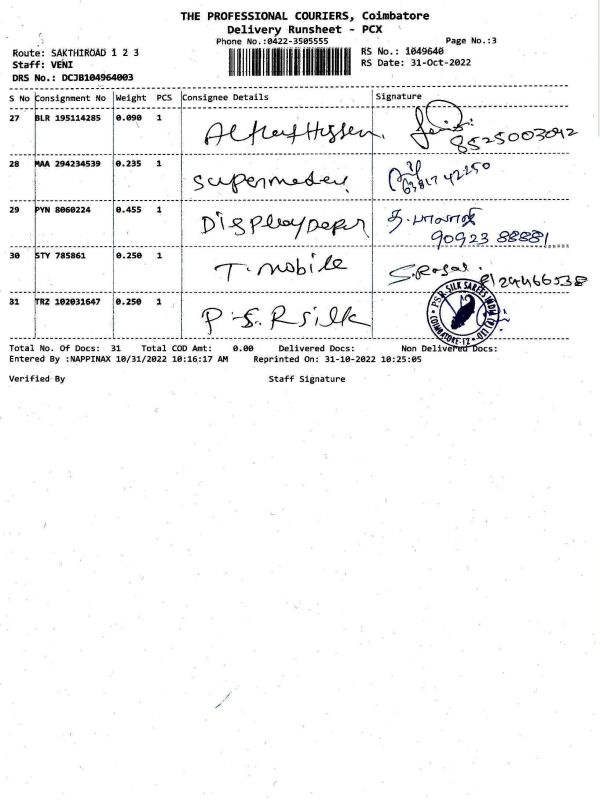 THE PROFESSIONAL COURIERS, Coimbatore
Delivery Runsheet - PCX
Phone No.:0422-3505555
Page No.:3
Route: SAKTHIROAD 1 2 3
RS No.: 1049640
Staff: VENI
RS Date: 31-Oct-2022
DRS No.: DCJB104964003
S No Consignment No Weight PCS Consignee Details Signature
27 BLR 195114285 0.090 1
8525003042
28 MAA 294234539 0.235 1
29 PYN 8060224 0.455 1
90923 88881
30 STY 785861 0.250 1 T. mobile
31 TRZ 102031647 0.250 1 P.S.R silk
Total No. Of Docs: 31 Total COD Amt: 0.00 Delivered Docs: Non Delivered Docs:
Entered By :NAPPINAX 10/31/2022 10:16:17 AM Reprinted On: 31-10-2022 10:25:05
Verified By Staff Signature